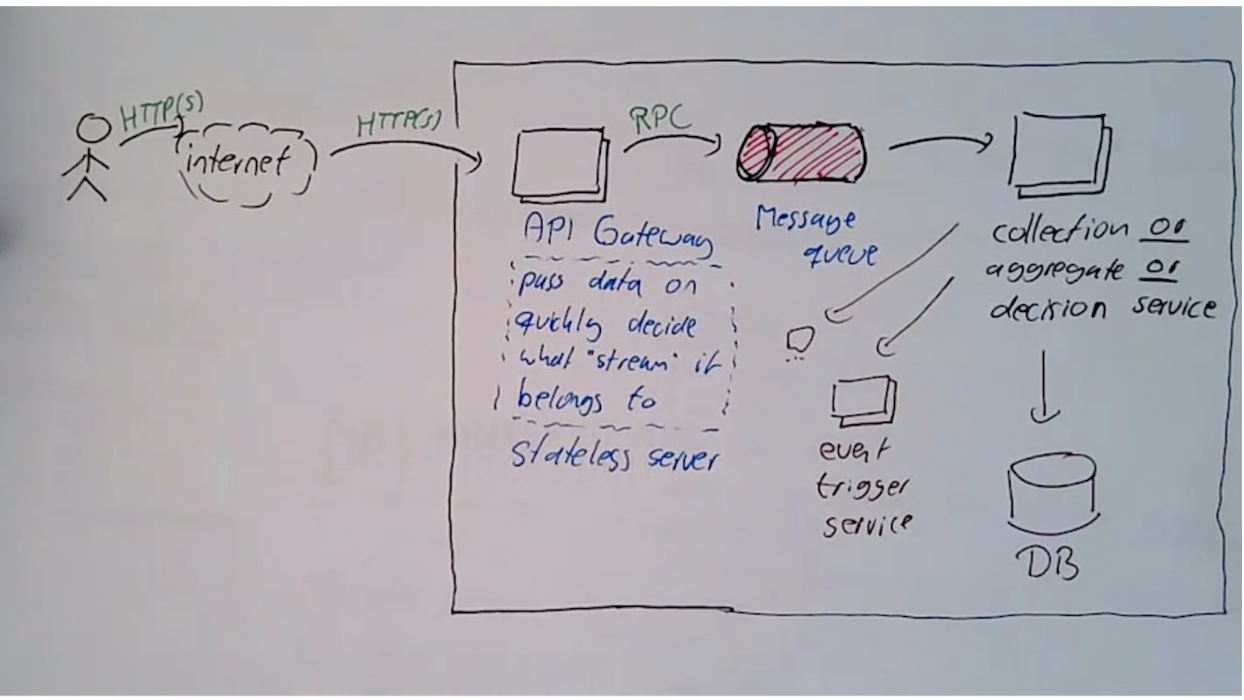 HTTP(s)
internet
HTTP(s)
RPC
API Gateway
pass data on
quickly decide
what "stream" it
belongs to
stateless server
Message
queue
collection or
aggregate or
decision service
event
trigger
service
DB